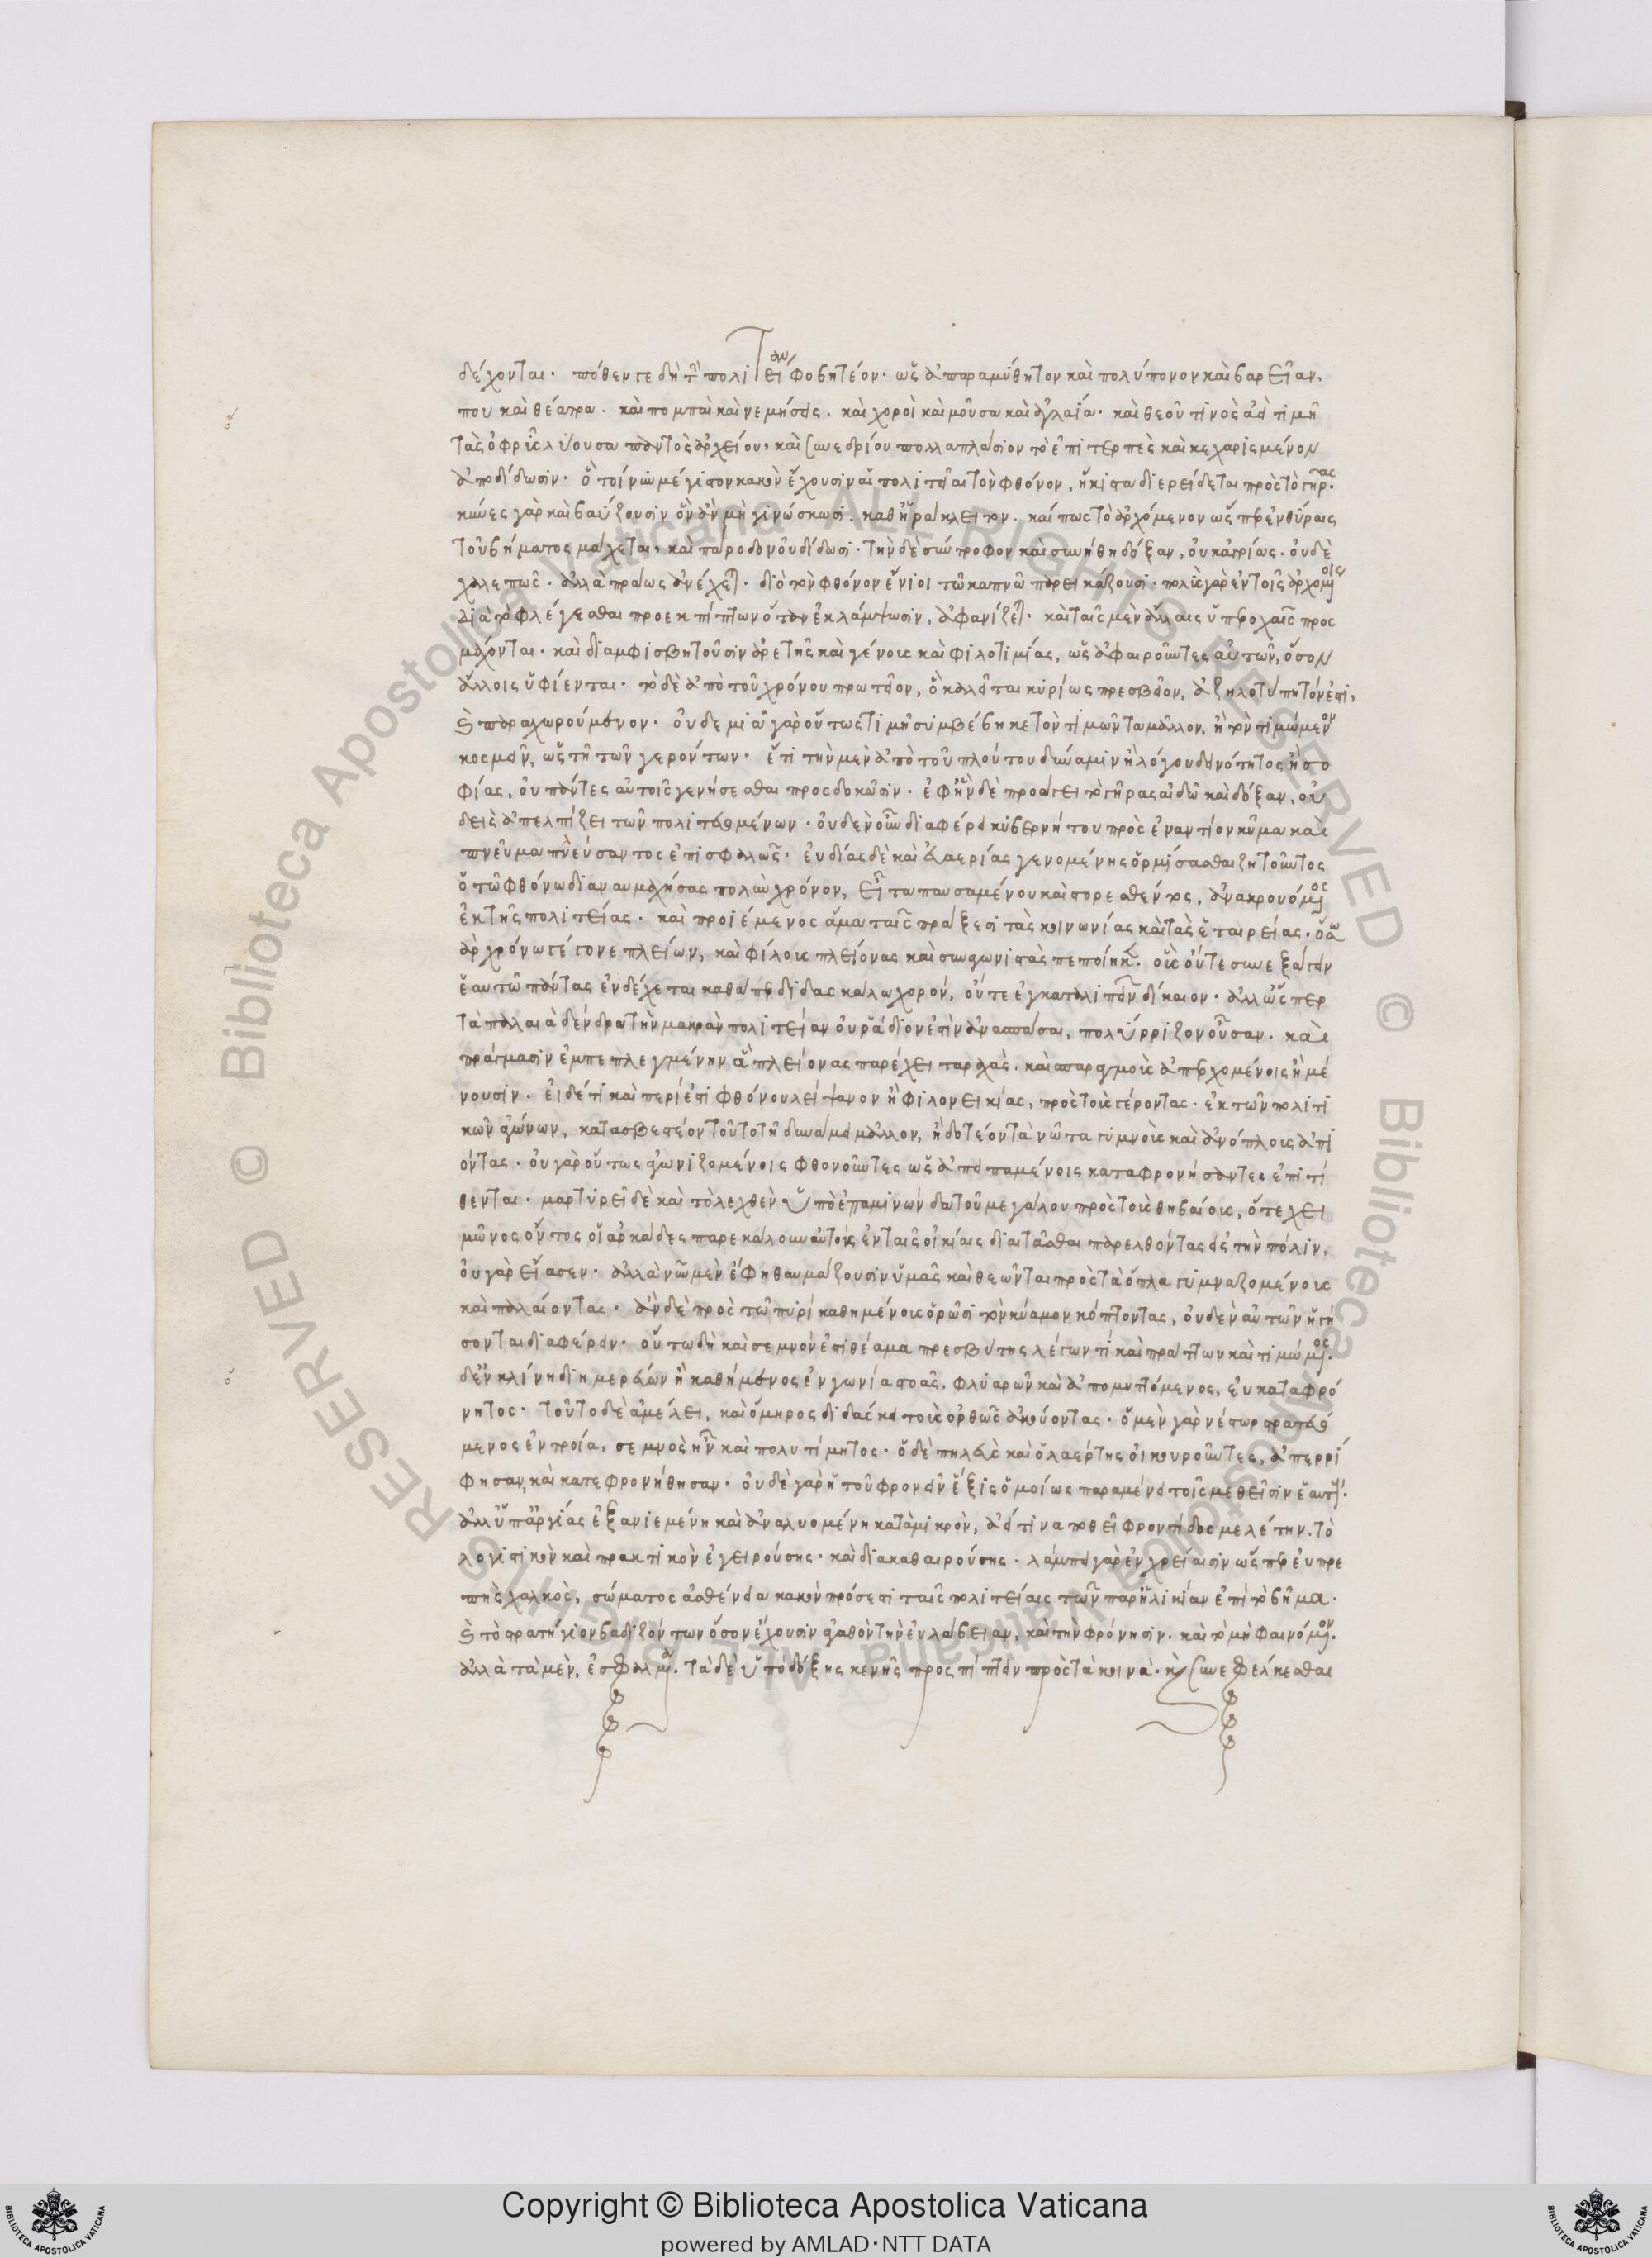 δέχονται. πόθεν γε δὴ τὴν πολιτείαν φοβητέον. ὡς ἀπαραμύθητον καὶ πολύπονον καὶ βαρεῖαν.
που καὶ θέατρα. καὶ πομπαὶ καὶ νεμήσεις. καὶ χοροὶ καὶ μοῦσα καὶ ἀγλαΐα. καὶ θεοῦ τινὸς ἀεὶ τιμὴ
τὰς ὀφρῦς λύουσα παντὸς ἀρχείου, καὶ συνεδρίου πολλαπλάσιον τὸ ἐπιτερπὲς καὶ κεχαρισμένον
ἀποδίδωσιν. ὃ τοίνυν μέγιστον κακὸν ἔχουσιν αἱ πολιτεῖαι τὸν φθόνον, ἥκιστα διερείδεται πρὸς τὸ γῆρας.
κύνες γὰρ καὶ βαΰζουσιν ὃν ἂν μὴ γινώσκωσι. καθ' ἡράκλειτον. καί πως τὸ ἀρχόμενον ὥσπερ ἐν θύραις
τοῦ βήματος μάχεται, καὶ πάροδον οὐ δίδωσι. τὴν δὲ σύντροφον καὶ συνήθη δόξαν, οὐκ ἀγρίως. οὐδὲ
χαλεπῶς. ἀλλὰ πράως ἀνέχεται. διὸ τὸν φθόνον ἔνιοι τῷ καπνῷ παρεικάζουσι. πολὺς γὰρ ἐν τοῖς ἀρχομένοις
διὰ τὸ φλέγεσθαι προεκπίπτων ὅταν ἐκλάμψωσιν, ἀφανίζεται. καὶ ταῖς μὲν ἄλλαις ὑπεροχαῖς προς
μάχονται. καὶ διαμφισβητοῦσιν ἀρετῆς καὶ γένους καὶ φιλοτιμίας, ὡς ἀφαιροῦντες αὐτῶν, ὅσον
ἄλλοις ὑφίενται. τὸ δὲ ἀπὸ τοῦ χρόνου πρωτεῖον, ὃ καλεῖται κυρίως πρεσβεῖον, ἀζηλοτύπητόν ἐστι,
καὶ παραχωρούμενον. οὐδεμιᾷ γὰρ οὕτως τιμῇ συμβέβηκε τὸν τιμῶντα μᾶλλον, ἢ τὸν τιμώμενον
κοσμεῖν, ὡς τῇ τῶν γερόντων. ἔτι τὴν μὲν ἀπὸ τοῦ πλούτου δύναμιν ἢ λόγου δεινότητος ἢ σο
φίας, οὐ πάντες αὐτοῖς γενήσεσθαι προσδοκῶσιν. ἐφ' ἣν δὲ προάγει τὸ γῆρας αἰδῶ καὶ δόξαν, οὐ
δεὶς ἀπελπίζει τῶν πολιτευομένων. οὐδὲν οὖν διαφέρει κυβερνήτου πρὸς ἐναντίον κῦμα καὶ
πνεῦμα πλεύσαντος ἐπισφαλῶς. εὐδίας δὲ καὶ εὐαερίας γενομένης ὁρμίσασθαι ζητοῦντος
ὁ τῷ φθόνῳ διαναυμαχήσας πολὺν χρόνον, εἶτα παυσαμένου καὶ στορεσθέντος, ἀνακρουόμενος
ἐκ τῆς πολιτείας. καὶ προϊέμενος ἅμα ταῖς πράξεσι τὰς κοινωνίας καὶ τὰς ἑταιρείας. ὅσῳ
γὰρ χρόνῳ γέγονε πλείων, καὶ φίλους πλείονας καὶ συναγωνιστὰς πεποίηκεν. οὓς οὔτε συνεξάγειν
ἑαυτῷ πάντας ἐνδέχεται καθάπερ διδασκάλῳ χορόν, οὔτε ἐγκαταλιπεῖν δίκαιον. ἀλλ' ὥσπερ
τὰ παλαιὰ δένδρα τὴν μακρὰν πολιτείαν οὐ ῥᾴδιόν ἐστιν ἀνασπάσαι, πολύρριζον οὖσαν. καὶ
πράγμασιν ἐμπεπλεγμένην ἃ πλείονας παρέχει ταραχὰς. καὶ σπαραγμοὺς ἀπερχομένοις ἢ μέ
νουσιν. εἰ δέ τι καὶ περίεστι φθόνου λείψανον ἢ φιλονεικίας, πρὸς τοὺς γέροντας. ἐκ τῶν πολιτι
κῶν ἀγώνων, κατασβεστέον τοῦτο τῇ δυνάμει μᾶλλον, ἢ δοτέον τὰ νῶτα γυμνοὺς καὶ ἀνόπλους ἀπι
όντας. οὐ γὰρ οὕτως ἀγωνιζομένοις φθονοῦντες ὡς ἀπειπαμένοις καταφρονήσαντες ἐπιτί
θενται. μαρτυρεῖ δὲ καὶ τὸ λεχθὲν ὑπὸ ἐπαμινώνδα τοῦ μεγάλου πρὸς τοὺς θηβαίους, ὅτε χει
μῶνος ὄντος οἱ ἀρκάδες παρεκάλουν αὐτοὺς ἐν ταῖς οἰκίαις διαιτᾶσθαι παρελθόντας εἰς τὴν πόλιν,
οὐ γὰρ εἴασεν. ἀλλὰ νῦν μὲν ἔφη θαυμάζουσιν ὑμᾶς καὶ θεῶνται πρὸς τὰ ὅπλα γυμναζομένους
καὶ παλαίοντας. ἂν δὲ πρὸς τῷ πυρὶ καθημένους ὁρῶσι τὸν κύαμον κόπτοντας, οὐδὲν αὐτῶν ἡγή
σονται διαφέρειν. οὕτω δὴ καὶ σεμνόν ἐστι θέαμα πρεσβύτης λέγων τι καὶ πράττων καὶ τιμώμενος.
ὁ δ' ἐν κλίνῃ διημερεύων ἢ καθήμενος ἐν γωνίᾳ στοᾶς. φλυαρῶν καὶ ἀπομυττόμενος, εὐκαταφρό
νητος. τοῦτο δὲ ἀμέλει, καὶ ὅμηρος διδάσκει τοὺς ὀρθῶς ἀκούοντας. ὁ μὲν γὰρ νέστωρ στρατευό
μενος ἐν τροίᾳ, σεμνὸς ἦν καὶ πολυτίμητος. ὁ δὲ πηλεὺς καὶ ὁ λαέρτης οἰκουροῦντες, ἀπερρί
φησαν, καὶ κατεφρονήθησαν. οὐδὲ γὰρ ἡ τοῦ φρονεῖν ἕξις ὁμοίως παραμένει τοῖς μεθεῖσιν ἑαυτήν.
ἀλλ' ὑπ' ἀργίας ἐξανιεμένη καὶ ἀναλυομένη κατὰ μικρὸν, ἀεί τινα ποθεῖ φροντίδος μελέτην. τὸ
λογιστικὸν καὶ πρακτικὸν ἐγειρούσης. καὶ διακαθαιρούσης. λάμπει γὰρ ἐν χρείαισιν ὥσπερ εὐπρε
πὴς χαλκός, σώματος ἀσθένεια κακὸν πρόσεστι ταῖς πολιτείαις τῶν παρ' ἡλικίαν ἐπὶ τὸ βῆμα.
καὶ τὸ στρατήγιον βαδιζόντων ὅσον ἔχουσιν ἀγαθὸν τὴν εὐλάβειαν, καὶ τὴν φρόνησιν. καὶ τὸ μὴ φαινόμενον.
ἀλλὰ τὰ μὲν, ἐσφαλμένον. τὰ δὲ ὑπὸ δόξης κενῆς προσπίπτειν πρὸς τὰ κοινὰ. καὶ συνεφέλκεσθαι
Copyright © Biblioteca Apostolica Vaticana
powered by AMLAD·NTT DATA